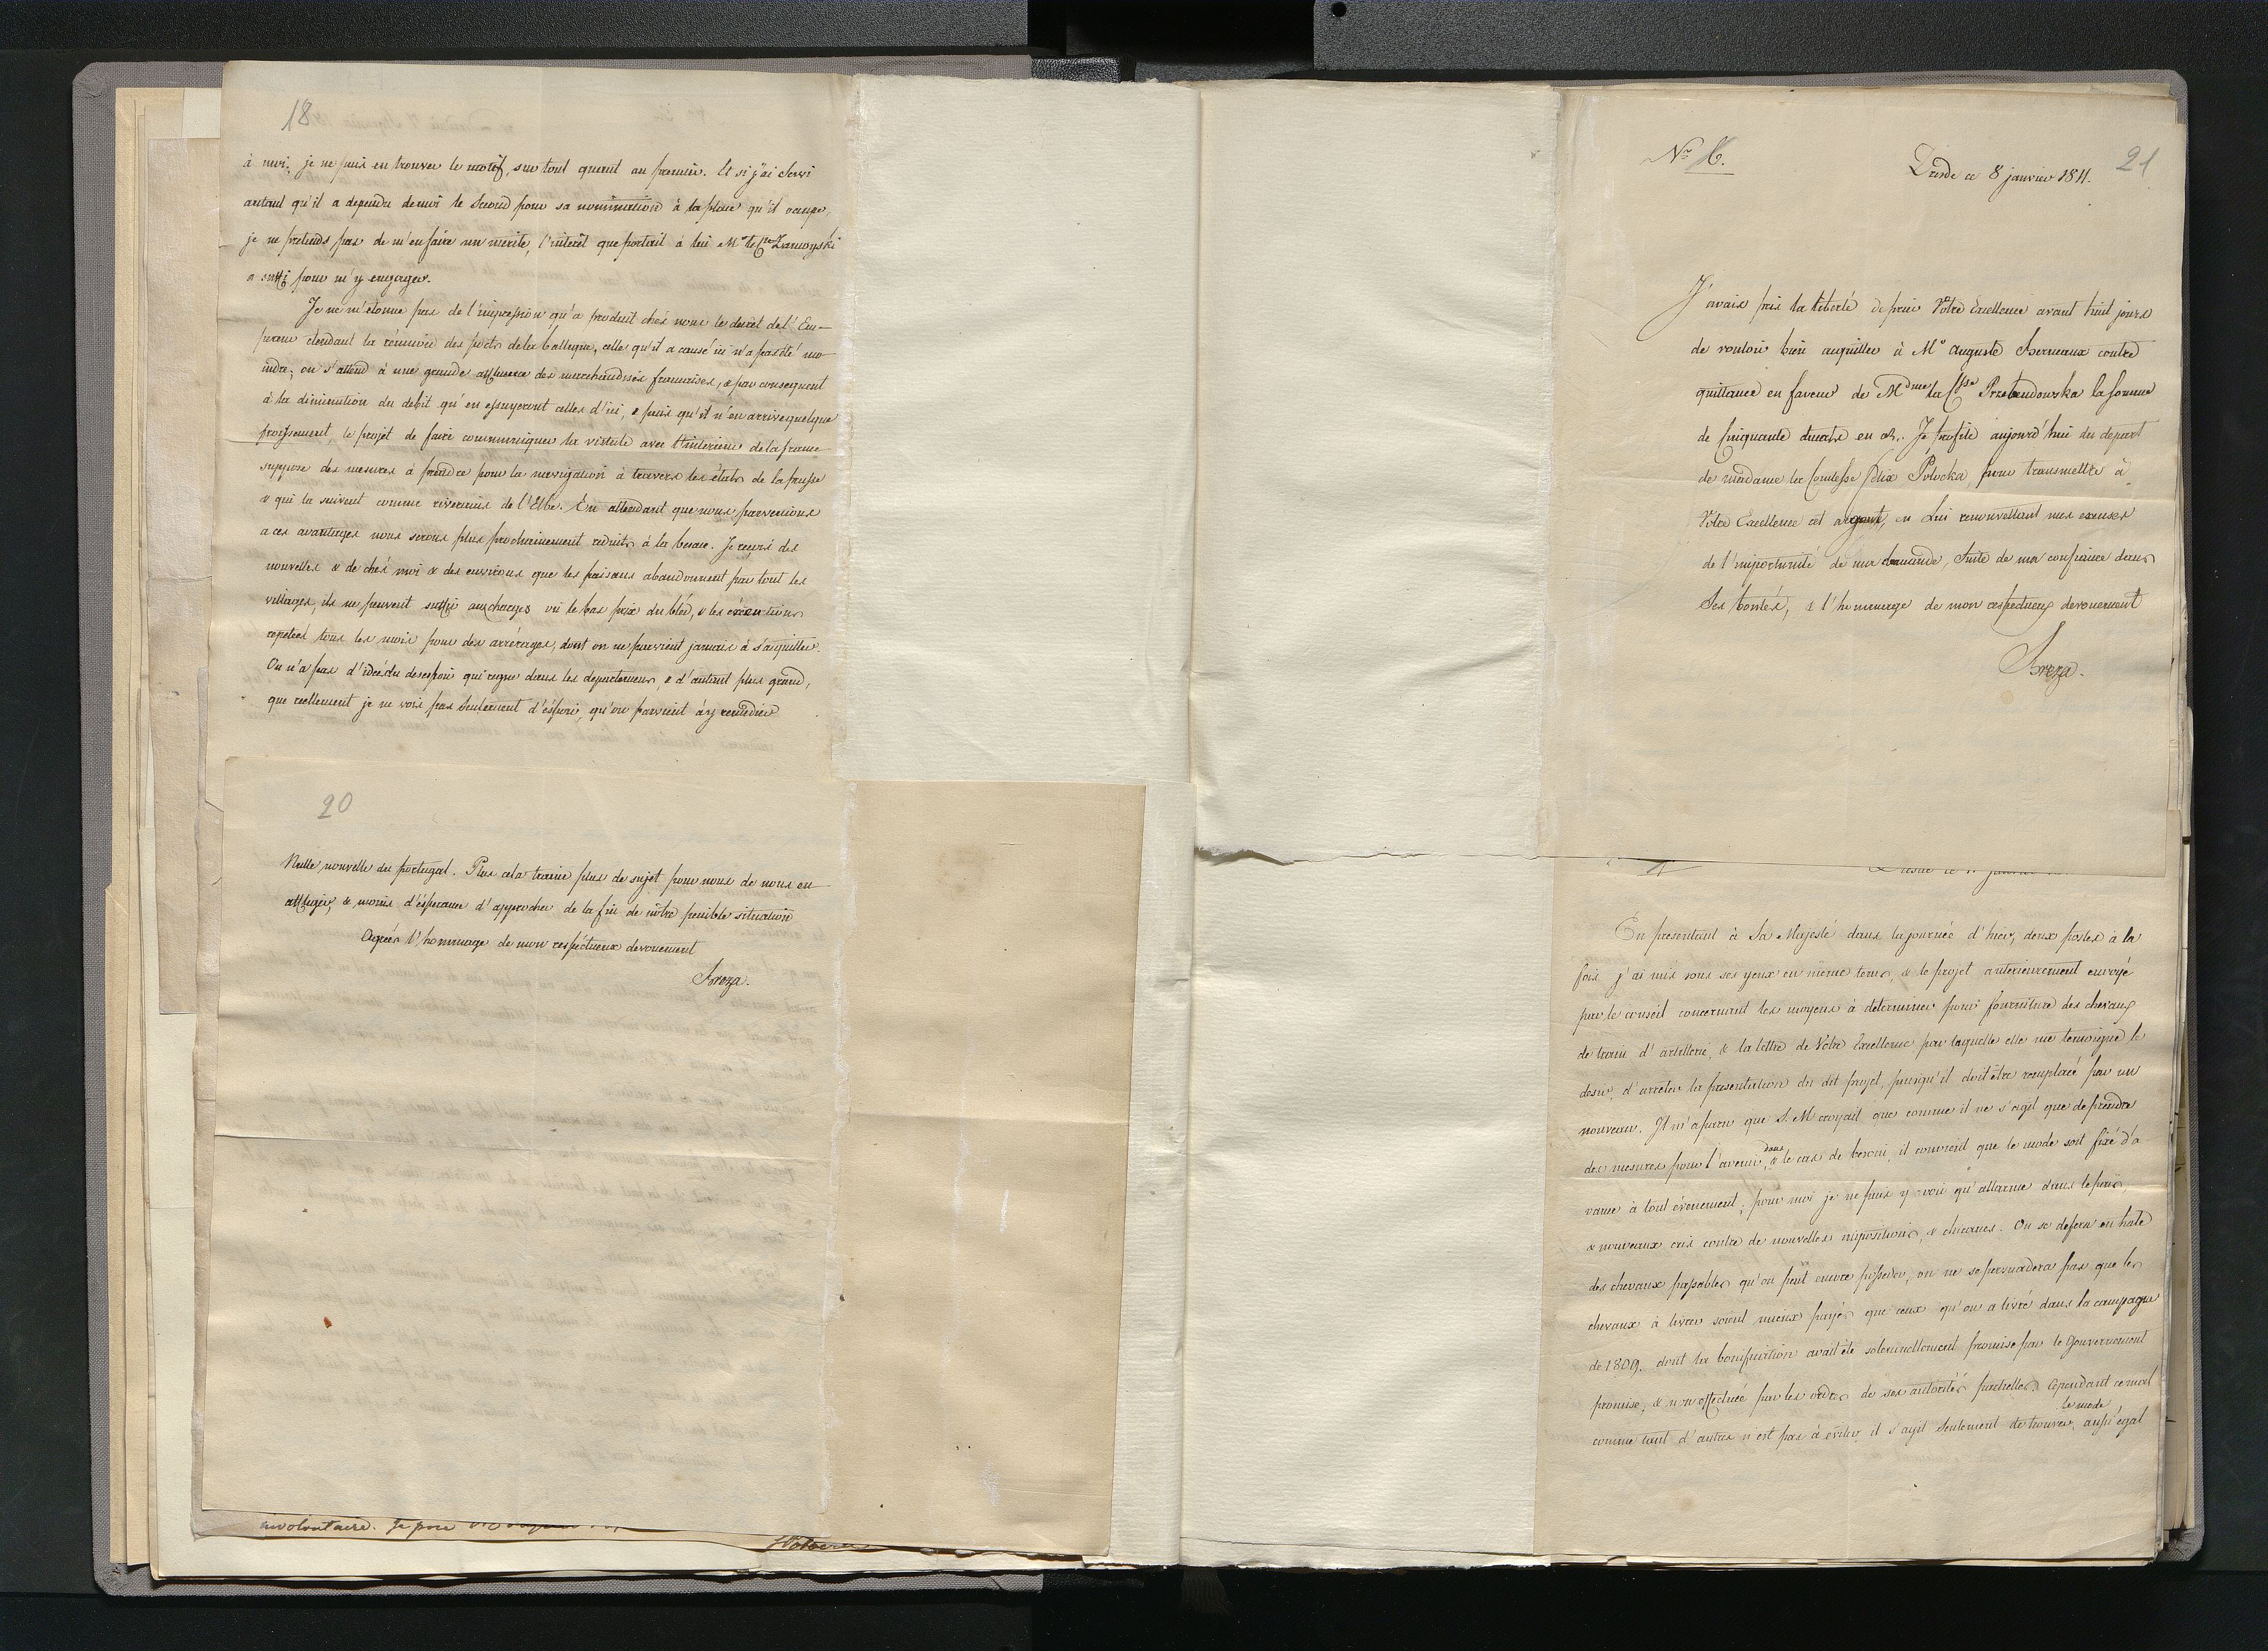 18
à moi; je ne puis en trouver le motif, sur tout quant au premier. Et si j'ai servi
autant qu'il a dependu de moi le second pour sa nomination à la place qu'il occupe,
je ne pretends pas de m'en faire un merite, l'interêt que portait à lui Mr le Cte Zamoyski
a suffi pour m'y engager.
Je ne m'etonne pas de l'impression qu'a produit chés nous le decret de l'Em-
pereur etendant la réunion des ports de la baltique, celle qu'il a causé ici n'a pas été mo-
indre; on s'attend à une grande affluence des marchandises francaises, & par consequent
à la diminution du debit qu'en essuyeront celles d'ici, & puis qu'il n'en arrive quelque
froissement, le projet de faire communiquer la vistule avec l'interieur de la france
suppose des mesures à prendre pour la navigation à travers les états de la prusse
& qui la suivent comme riverains de l'Elbe. En attendant que nous parvenions
a ces avantages nous serons plus prochainement reduits à la besace. Je reçois des
nouvelles & de chés moi & des environs que les paisans abandonnent par tout les
villages, ils ne peuvent suffir aux charges vû le bas prix du bléd, & les exécutions
repetées tous les mois pour des arrérages, dont on ne parvient jamais à s'acquitter.
On n'a pas d'idée du desespoir qui regne dans les departemens, & d'autant plus grand,
que reellement je ne vois pas seulement d'éspoir, qu'on parvient à y remedier
20
Nulle nouvelle du portugal. Plus cela traine plus de sujet pour nous de nous en
affliger, & moins d'ésperance d'approcher de la fin de nôtre penible situation
Agreés l'hommage de mon respéctueux devouement
Breza.
involontaire. Je prie
Nr 6.
Dresde ce 8 janvier 1811.
21
J'avais pris la liberté de prier Votre Excellence avant huit jours
de vouloir bien acquitter à Mr Auguste Berneaux contre
quittance en faveur de Mdme la Csse Przebendowska la somme
de cinquante ducats en or. Je profite aujourd'hui du depart
de madame la Comtesse felix Potocka, pour transmettre à
Votre Excellence cet argent, en Lui renouvellant mes excuses
de l'importunité de ma demande, suite de ma confiance dans
Ses bontés, & l'hommage de mon respectueux devouement
Breza.
En presentant à Sa Majesté dans la journée d'hier, deux postes à la
fois j'ai mis sous ses yeux en même tems, & le projet anterieurement envoyé
par le conseil concernant les moyens à determiner pour fourniture des chevaux
de train d'artillerie, & la lettre de Votre Excellence par laquelle elle me temoigne le
desir, d'arreter la presentation du dit projet, puisqu'il doit être remplacé par un
nouveau. Il m'a paru que S. M. croyait que comme il ne s'agit que de prendre
des mesures pour l'avenir, & dans le cas de besoin, il convient que le mode soit fixé d'a
vance à tout évenement; pour moi je ne puis y voir qu'allarme dans le païs,
& nouveaux cris contre de nouvelles impositions, & chicanes. On se defera en hate
des chevaux passables qu'on peut encore posseder, on ne se persuadera pas que les
chevaux à livrer soient mieux payés que ceux qu'on a livré dans la campagne
de 1809. dont la bonification avait été solemnellement promise par le Gouvernement
promise, & non effectuée par les ordres de ses autorités partielles. Cependant ce mal
comme tant d'autres n'est pas à eviter, il s'agit seulement de trouver le mode aussi égal